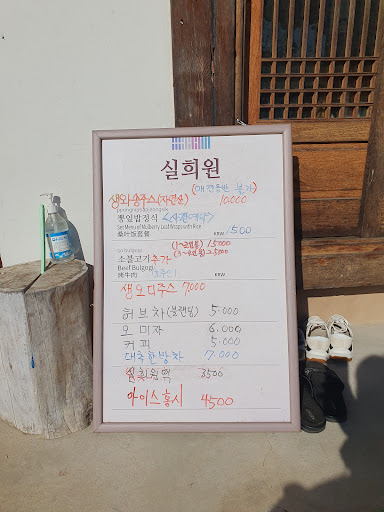 실희원
(매 전음반 불가)
생와송주스(자연산) 10,000
뽕잎밥정식 <사전예약>
Set Menu of Mulberry Leaf Wraps with Rice
桑叶饭套餐 KRW 1500
소불고기 추가 (1~2인분) 15000
Beef Bulgogi
烤牛肉 KRW
생오디주스 7,000
허브차(블랜딩) 5.000
오미자 6.000
커피 5.000
대추한방차 7.000
3500
아이스홍시 4500